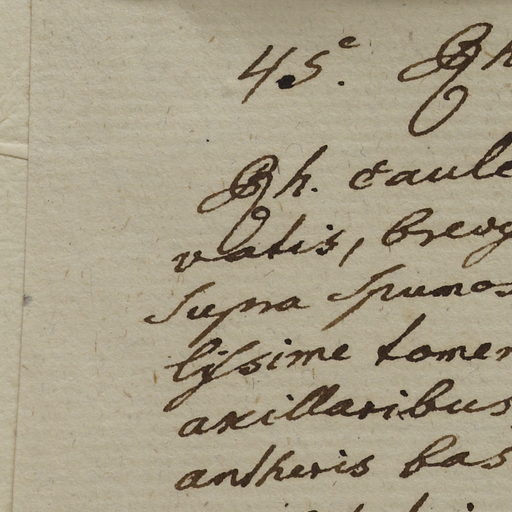 45e. Rh
Rh. caule
vatis, brevg
supra spumos
lissime tomen
axillaribus
antheris bas